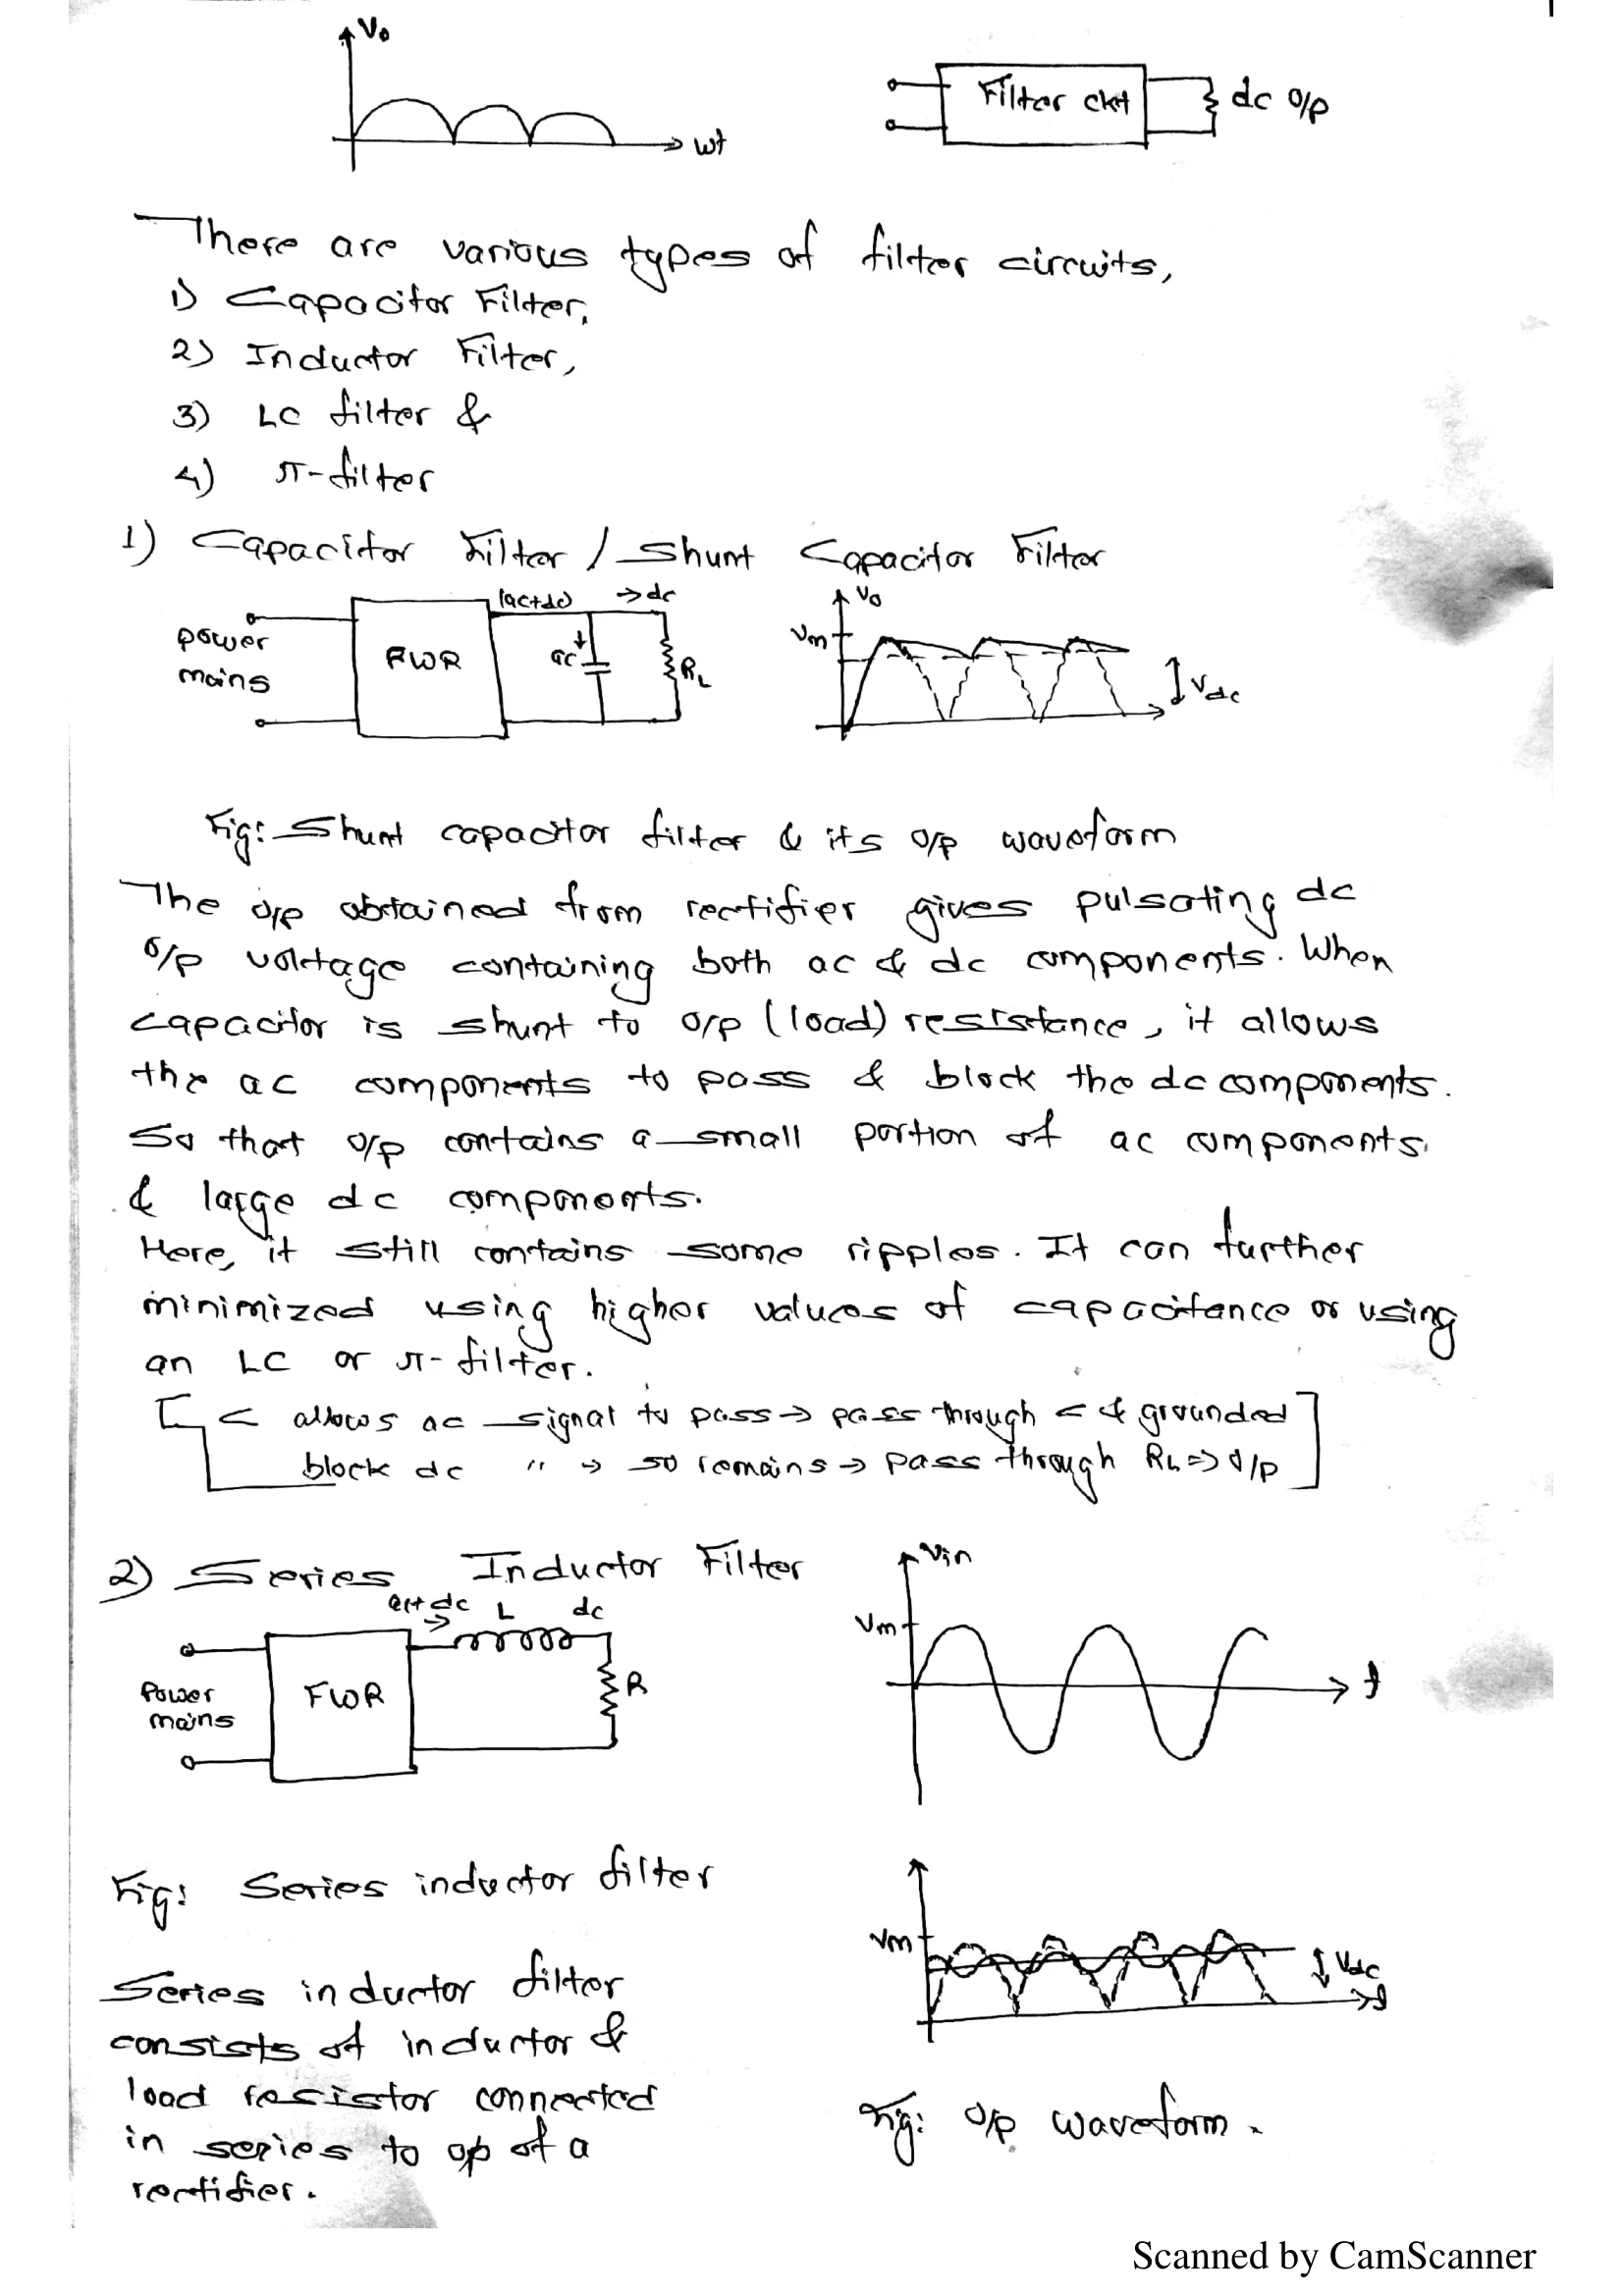 Vo
wt
Filter ckt
dc o/p
There are various types of filter circuits,
1) Capacitor Filter,
2) Inductor Filter,
3) LC filter &
4) π-filter
1) Capacitor Filter / Shunt Capacitor Filter
power mains
FWR
(ac+dc)
→ dc
ac
RL
Vo
Vm
Vdc
Fig: Shunt capacitor filter & its o/p waveform
The o/p obtained from rectifier gives pulsating dc
o/p voltage containing both ac & dc components. When
capacitor is shunt to o/p (load) resistance, it allows
the ac components to pass & block the dc components.
So that o/p contains a small portion of ac components
& large dc components.
Here, it still contains some ripples. It can further
minimized using higher values of capacitance or using
an LC or π-filter.
[C allows ac signal to pass → pass through C & grounded
block dc " → so remains → pass through RL ⇒ o/p]
2) Series Inductor Filter
ac+dc
L
dc
Power
mains
FWR
R
Vin
Vm
t
Fig: Series inductor filter
Vm
Vdc
t
Series inductor filter
consists of inductor &
load resistor connected
in series to op of a
rectifier.
Fig: o/p waveform.
Scanned by CamScanner